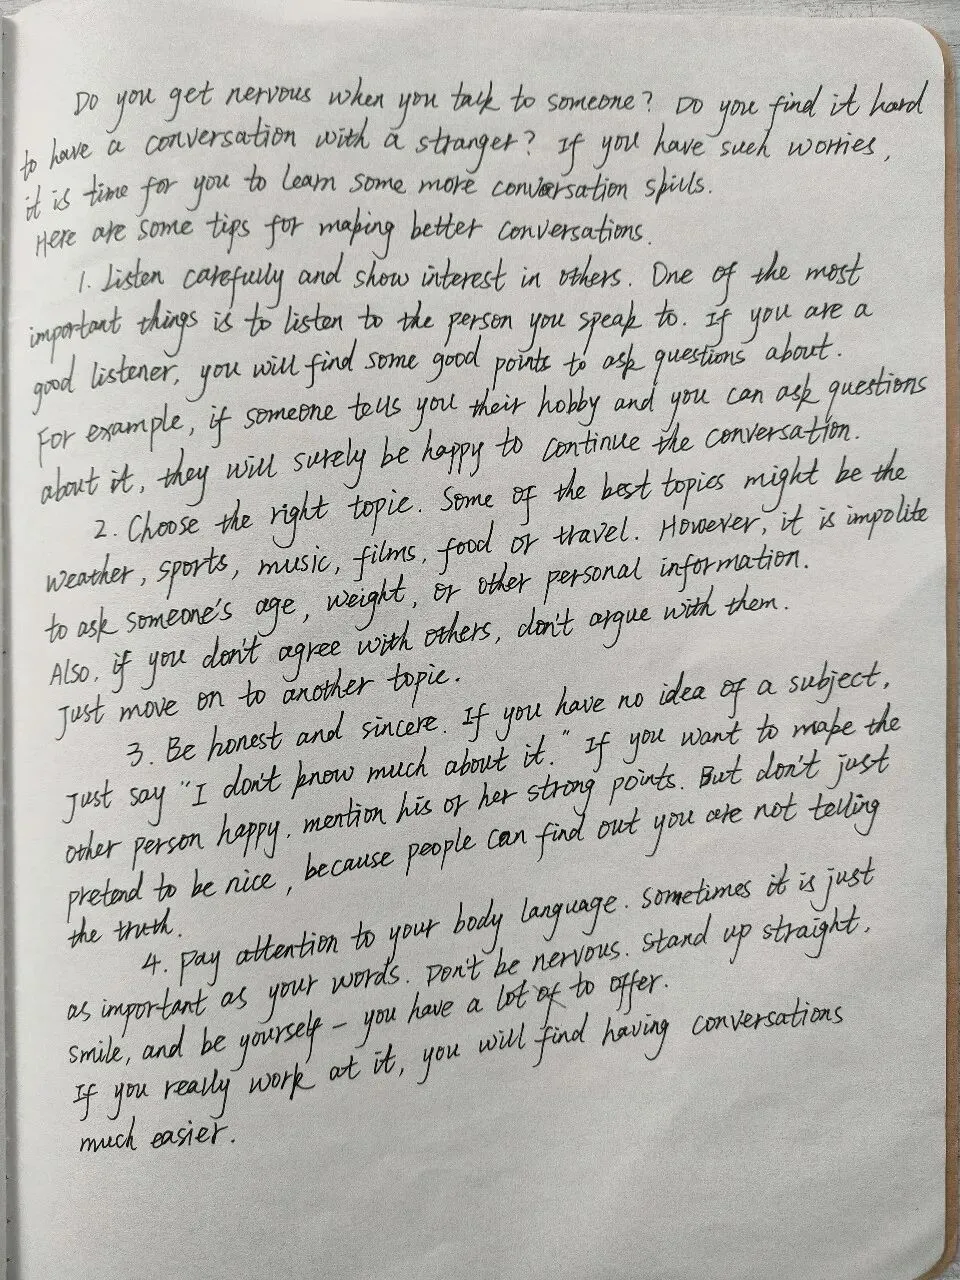 Do you get nervous when you talk to someone? Do you find it hard
to have a conversation with a stranger? If you have such worries,
it is time for you to learn some more conversation skills.
Here are some tips for making better conversations.
1. Listen carefully and show interest in others. One of the most
important things is to listen to the person you speak to. If you are a
good listener, you will find some good points to ask questions about.
For example, if someone tells you their hobby and you can ask questions
about it, they will surely be happy to continue the conversation.
2. Choose the right topic. Some of the best topics might be the
weather, sports, music, films, food or travel. However, it is impolite
to ask someone's age, weight, or other personal information.
Also, if you don't agree with others, don't argue with them.
Just move on to another topic.
3. Be honest and sincere. If you have no idea of a subject,
just say "I don't know much about it." If you want to make the
other person happy, mention his or her strong points. But don't just
pretend to be nice, because people can find out you are not telling
the truth.
4. Pay attention to your body language. Sometimes it is just
as important as your words. Don't be nervous. Stand up straight,
smile, and be yourself – you have a lot to offer.
If you really work at it, you will find having conversations
much easier.